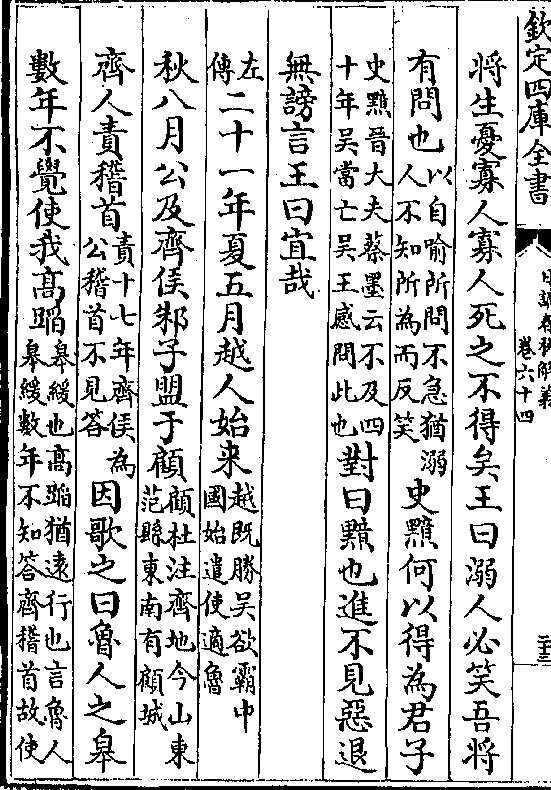 欽定四庫全書
日講春秋解義
卷六十四
二十三
將生憂寡人寡人死之不得矣王曰溺人必笑吾將
有問也以自喻所問不急猶溺人不知所為而反笑史黯何以得為君子
史黯晉大夫蔡墨云不及四十年吳當亡吳王感問此也對曰黯也進不見惡退
無謗言王曰宜哉
左傳二十一年夏五月越人始来越既勝吳欲霸中國始遣使適魯
秋八月公及齊侯邾子盟于顧顧杜注齊地今山東范縣東南有顧城
齊人責稽首責十七年齊侯為公稽首不見答因歌之曰魯人之皋
數年不覺使我髙蹈皋緩也髙蹈猶遠行也言魯人皋緩數年不知答齊稽首故使